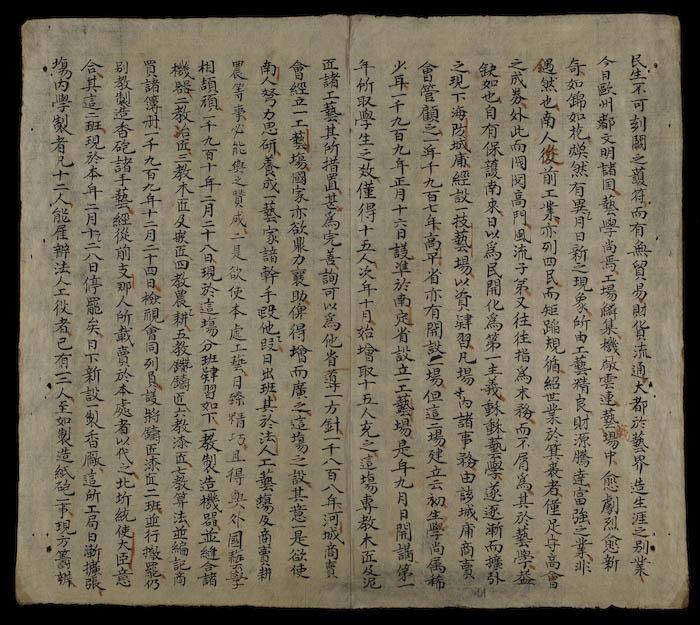 民生不可刻關之護符而有無貿易財貨流通大都於藝界造生涯之別業
今日歐州都文明諸国藝學尚焉工場鱗集機厰雲連藝場中愈劇烈愈新
奇如錦如花煥然有異月日新之現象所由工藝精良財源騰達富強之業非
偶然也南人從前工業亦列四民而矩蹈規循紹世業於箕裘者僅足守高曾
之成券外此而閥閱高門風流子弟又往往指為末務而不屑為其於藝學益
缺如也自有保護南來日以為民開化為第一主義穌穌藝學遂逐漸而擴引
之現下海防城庯經設一技藝場以資肄習凡場內諸事務由該城庯商賣
會管顧之一千九百七年高平省亦有開設一場但這二場建立云初生學尚属稀
少耳一千九百九年正月十六日議準於南定省設立工藝場是年九月日開講第一
年所取學生之效僅得十五人次年十月始增取十五人矣之這場專教木匠及泥
匠諸工藝其所措置甚為完善詢可以為他省導一方針一千八百八年河城商賣
會經立一工藝塲國家亦欲鼎力襄助俾得增而廣之這塲之設其意一是欲使
南人努力思研養成一藝家諳幹手段他段日出班其於法人工藝塲及商賣耕
農等事必能與之贊成二是欲使本處工藝日臻精巧且得與外國藝學
相頡頏一千九百十年二月二十八日現於這塲分班肄習如下一教製造機器並縫合諸
機器二教冶匠三教木匠及嵌匠四教農耕五教鑄鑄匠六教漆匠七教算法並編記商
買諸簿冊一千九百九年十二月二十四日檢視會同列員議將鑄匠漆匠二班並行撤罷仍
別教製造香砲諸手藝經從前支那人所載賣於本處者以代之北圻統使大臣意
合其這二班現於本年二月二十八日停罷矣日下新設一製香厰這所工局日漸擴張
塲内學製者凡十二人能雇辦法人工役者已有一二人至如製造紙砲一事現方籌辦